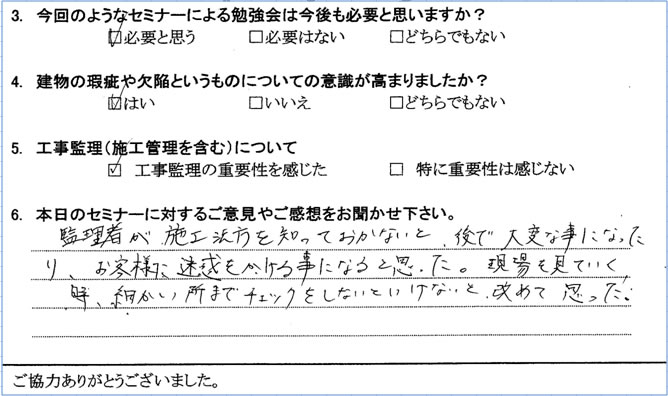 3. 今回のようなセミナーによる勉強会は今後も必要と思いますか？
☑必要と思う □必要はない □どちらでもない
4. 建物の瑕疵や欠陥というものについての意識が高まりましたか？
☑はい □いいえ □どちらでもない
5. 工事監理（施工管理を含む）について
☑ 工事監理の重要性を感じた □ 特に重要性は感じない
6. 本日のセミナーに対するご意見やご感想をお聞かせ下さい。
監理者が施工法方を知っておかないと、後で大変な事になった
り、お客様に迷惑をかける事になると思った。現場を見ていく
時、細かい所までチェックをしないといけないと、改めて思った。
ご協力ありがとうございました。